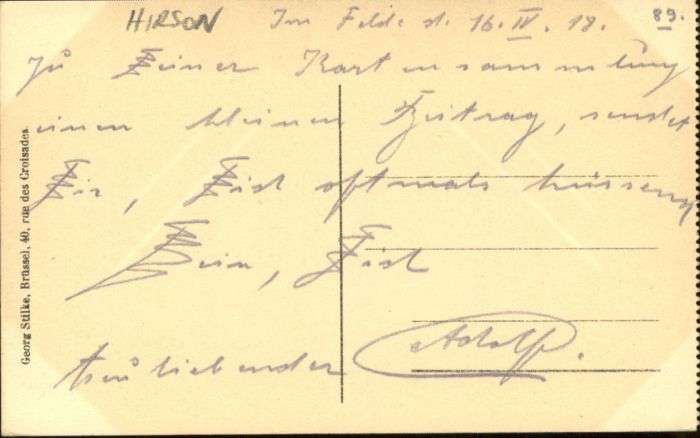 HIRSON Im Felde d. 16. IV. 18. 89.
Zu Deiner Kartensammlung
einen kleinen Beitrag, sendet
Dir, Dich oftmals küssend
Dein, Dich
treu liebender Adolf.
Georg Stilke, Brüssel, 40, rue des Croisades.